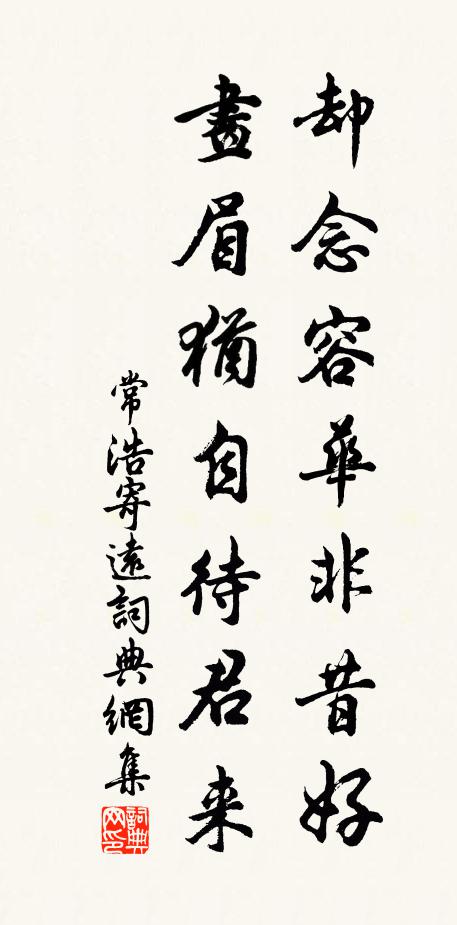 却念容華非昔好
畫眉猶自待君来
常浩寄遠詞典網集
詞典
网印